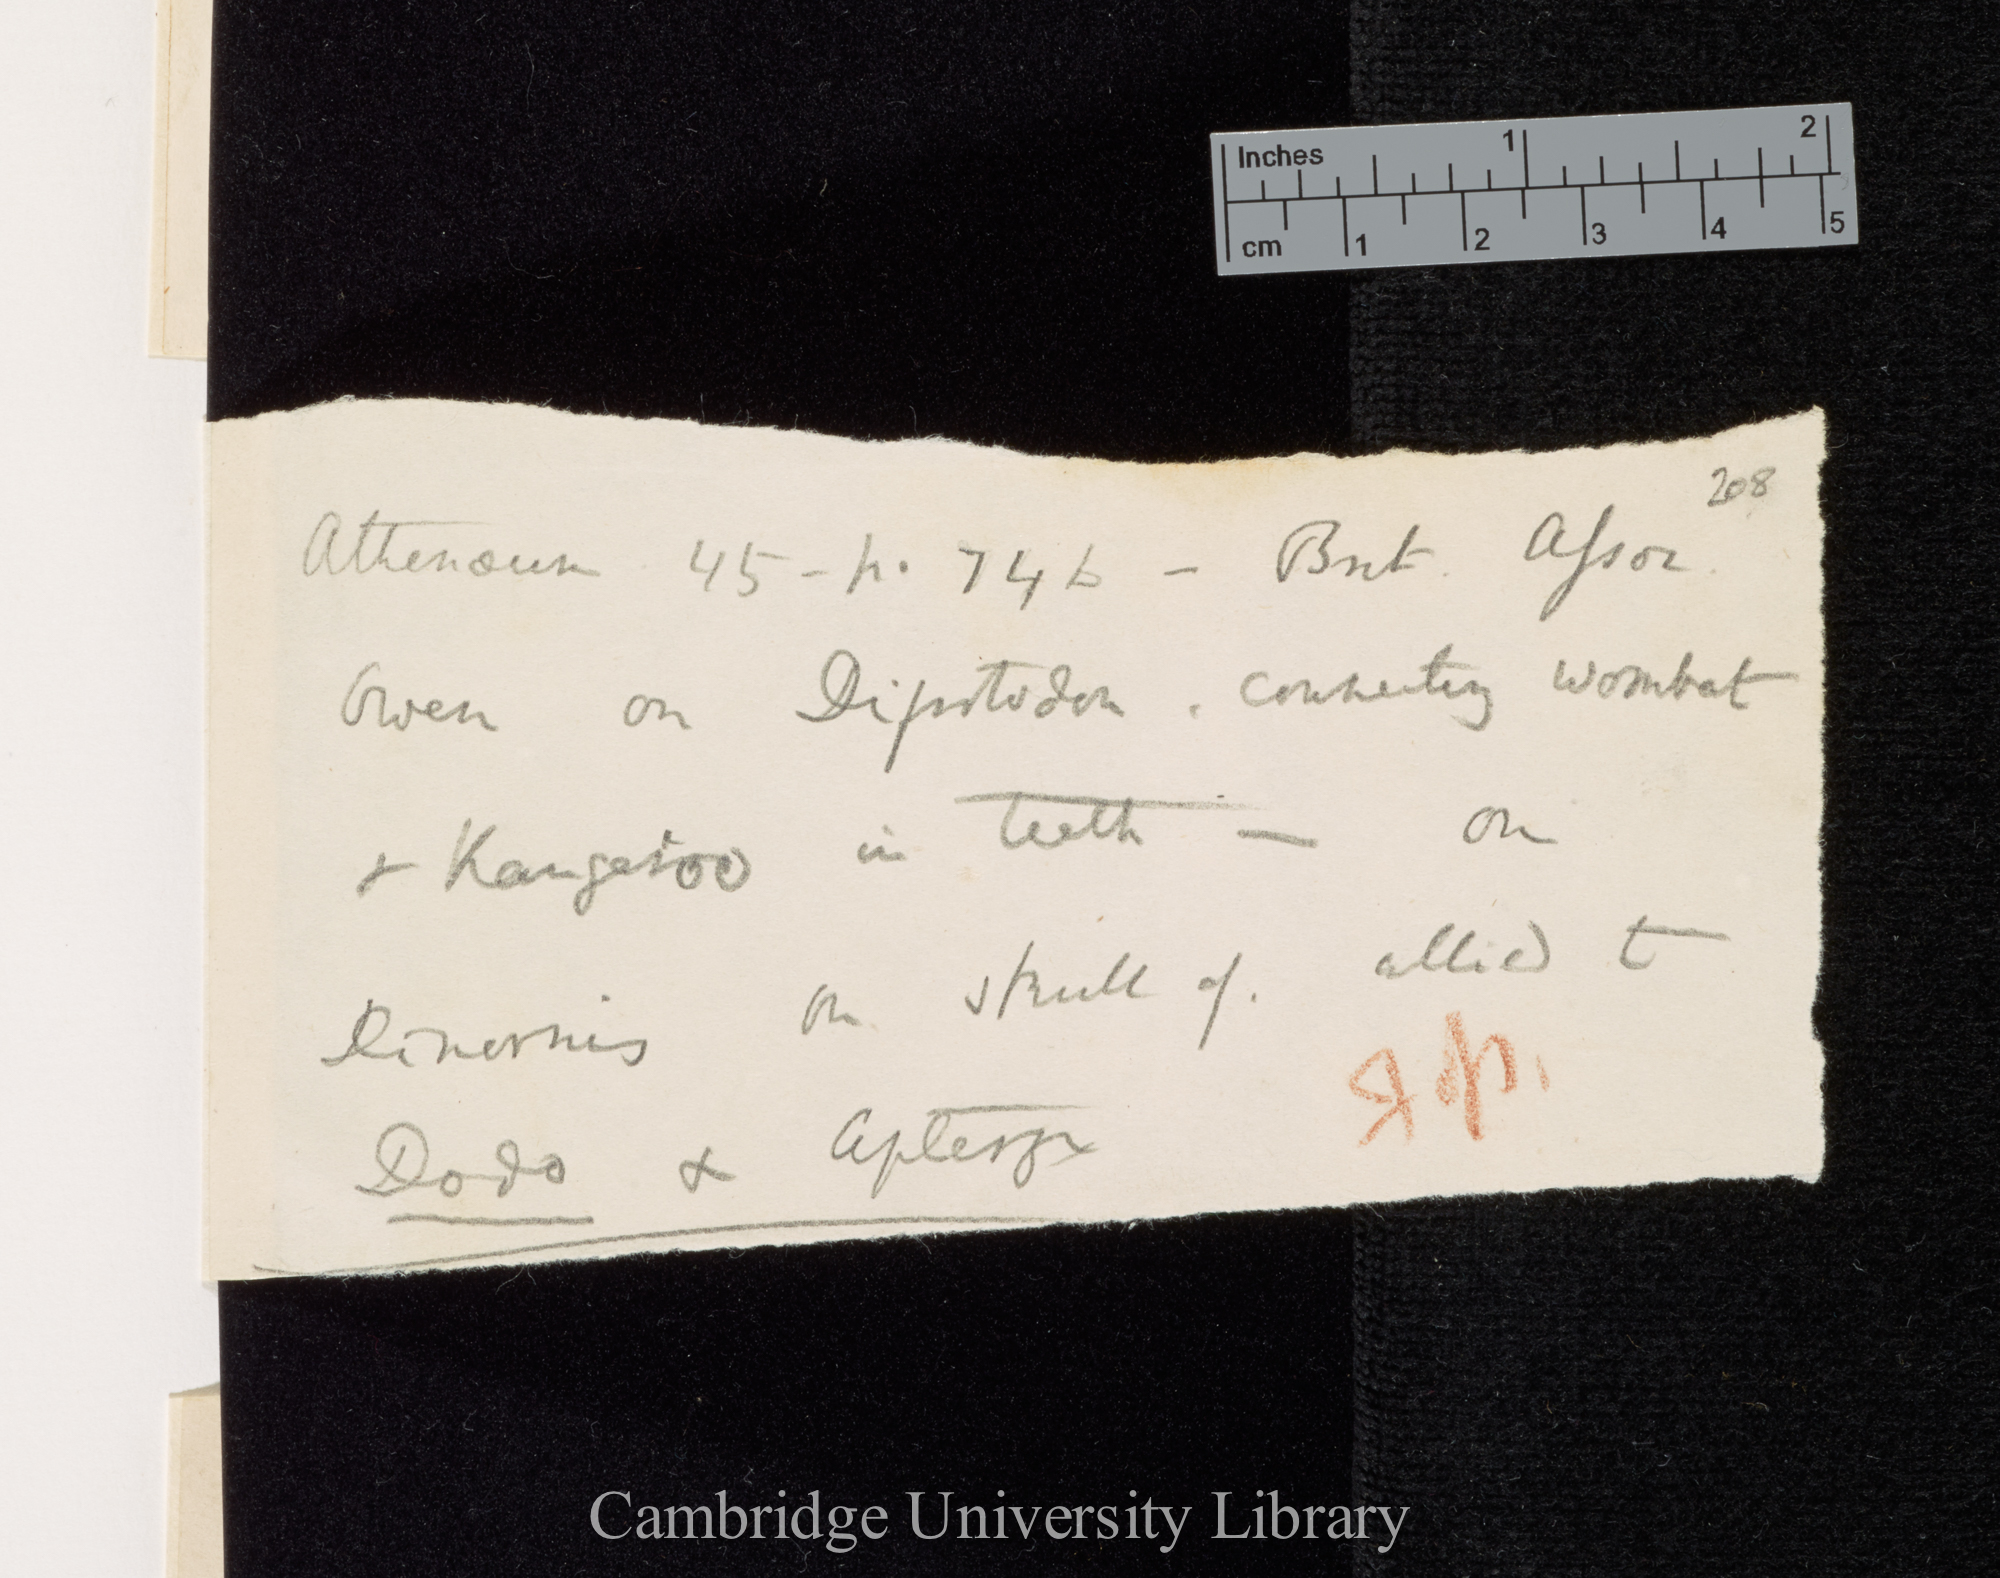 Inches 1 2
cm 1 2 3 4 5
208
Athenæum 45 - p. 746 - Brit. Assoc.
Owen on Dipotodon, connecting wombat
& Kangaroo in teeth — on
Dinornis on skull of. allied to
Dodo & Apteryx
Cambridge University Library